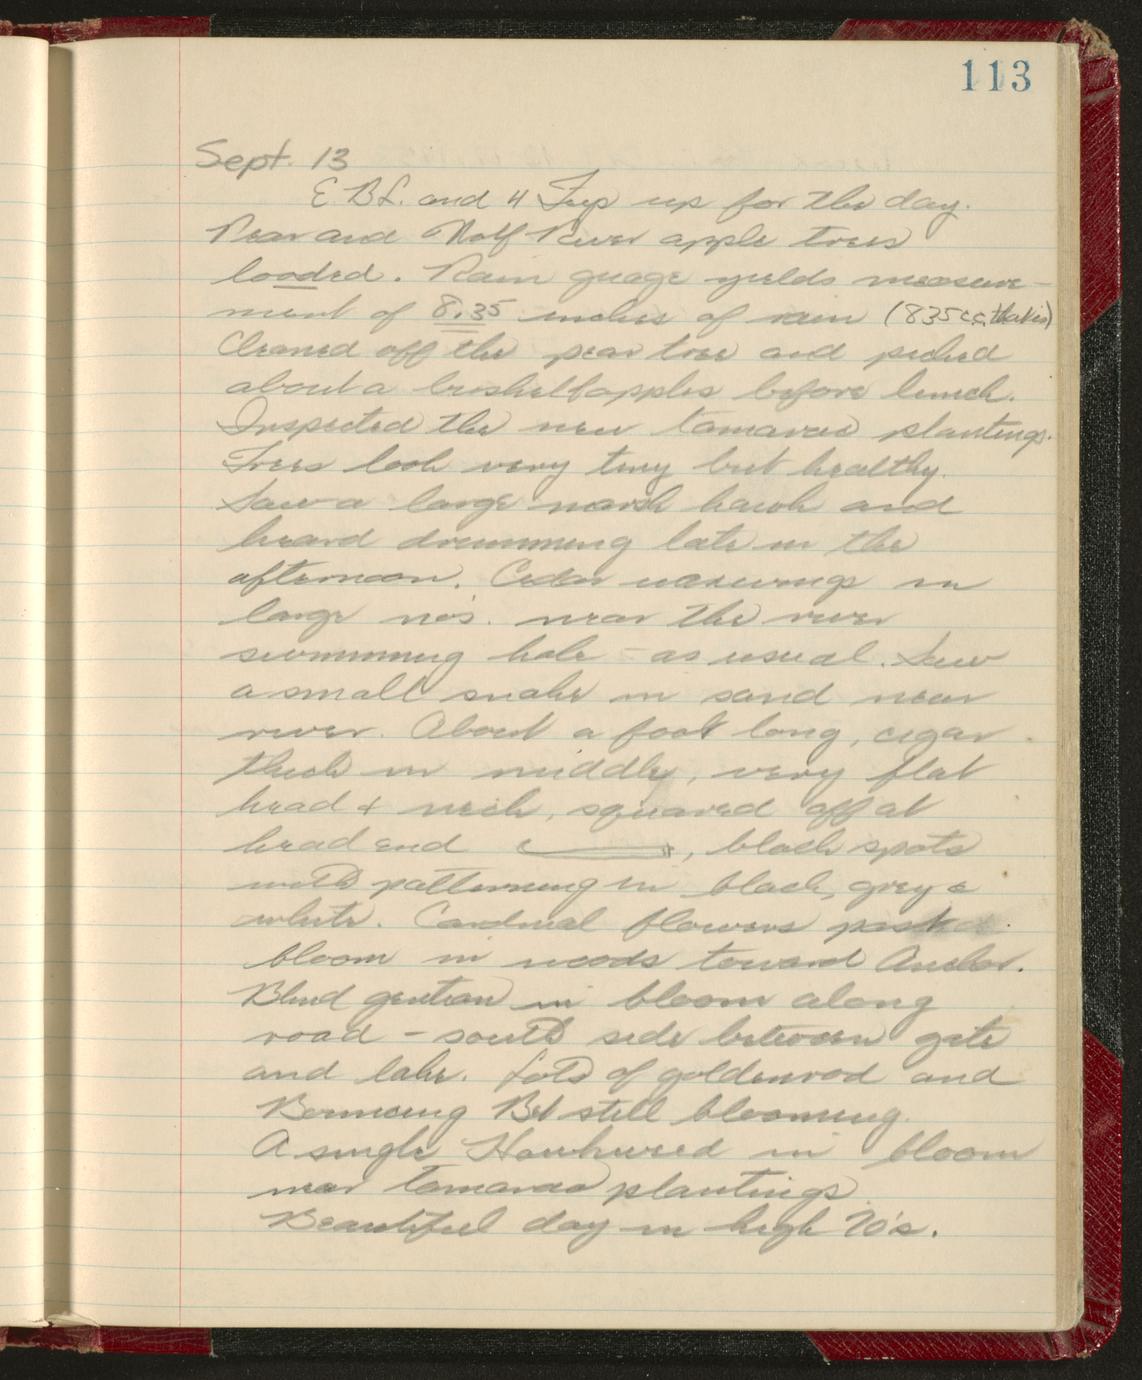 113
Sept. 13
E B L. and 4 up for the day.
Pear and Wolf River apple trees
loaded. Rain guage yields measure-
ment of 8.35 inches of rain (835 cc.
Cleaned off the pear tree and picked
about a bushell apples before lunch.
Inspected the new tamarac plantings.
Trees look very tiny but healthy.
Saw a large marsh hawk and
heard drumming late in the
afternoon. Cedar waxwings in
large no's. near the river
swimming hole - as usual. Saw
a small snake in sand near
river. About a foot long, cigar
thick in middle, very flat
head & neck, squared off at
head end , black spots
with patterning in black, grey &
white. Cardinal flowers past
bloom in woods toward Anchor.
Blind gentian in bloom along
road - south side between gate
and lake. Lots of goldenrod and
Bouncing Bet still blooming.
A single Hawkweed in bloom
near tamarac plantings.
Beautiful day in high 70's.